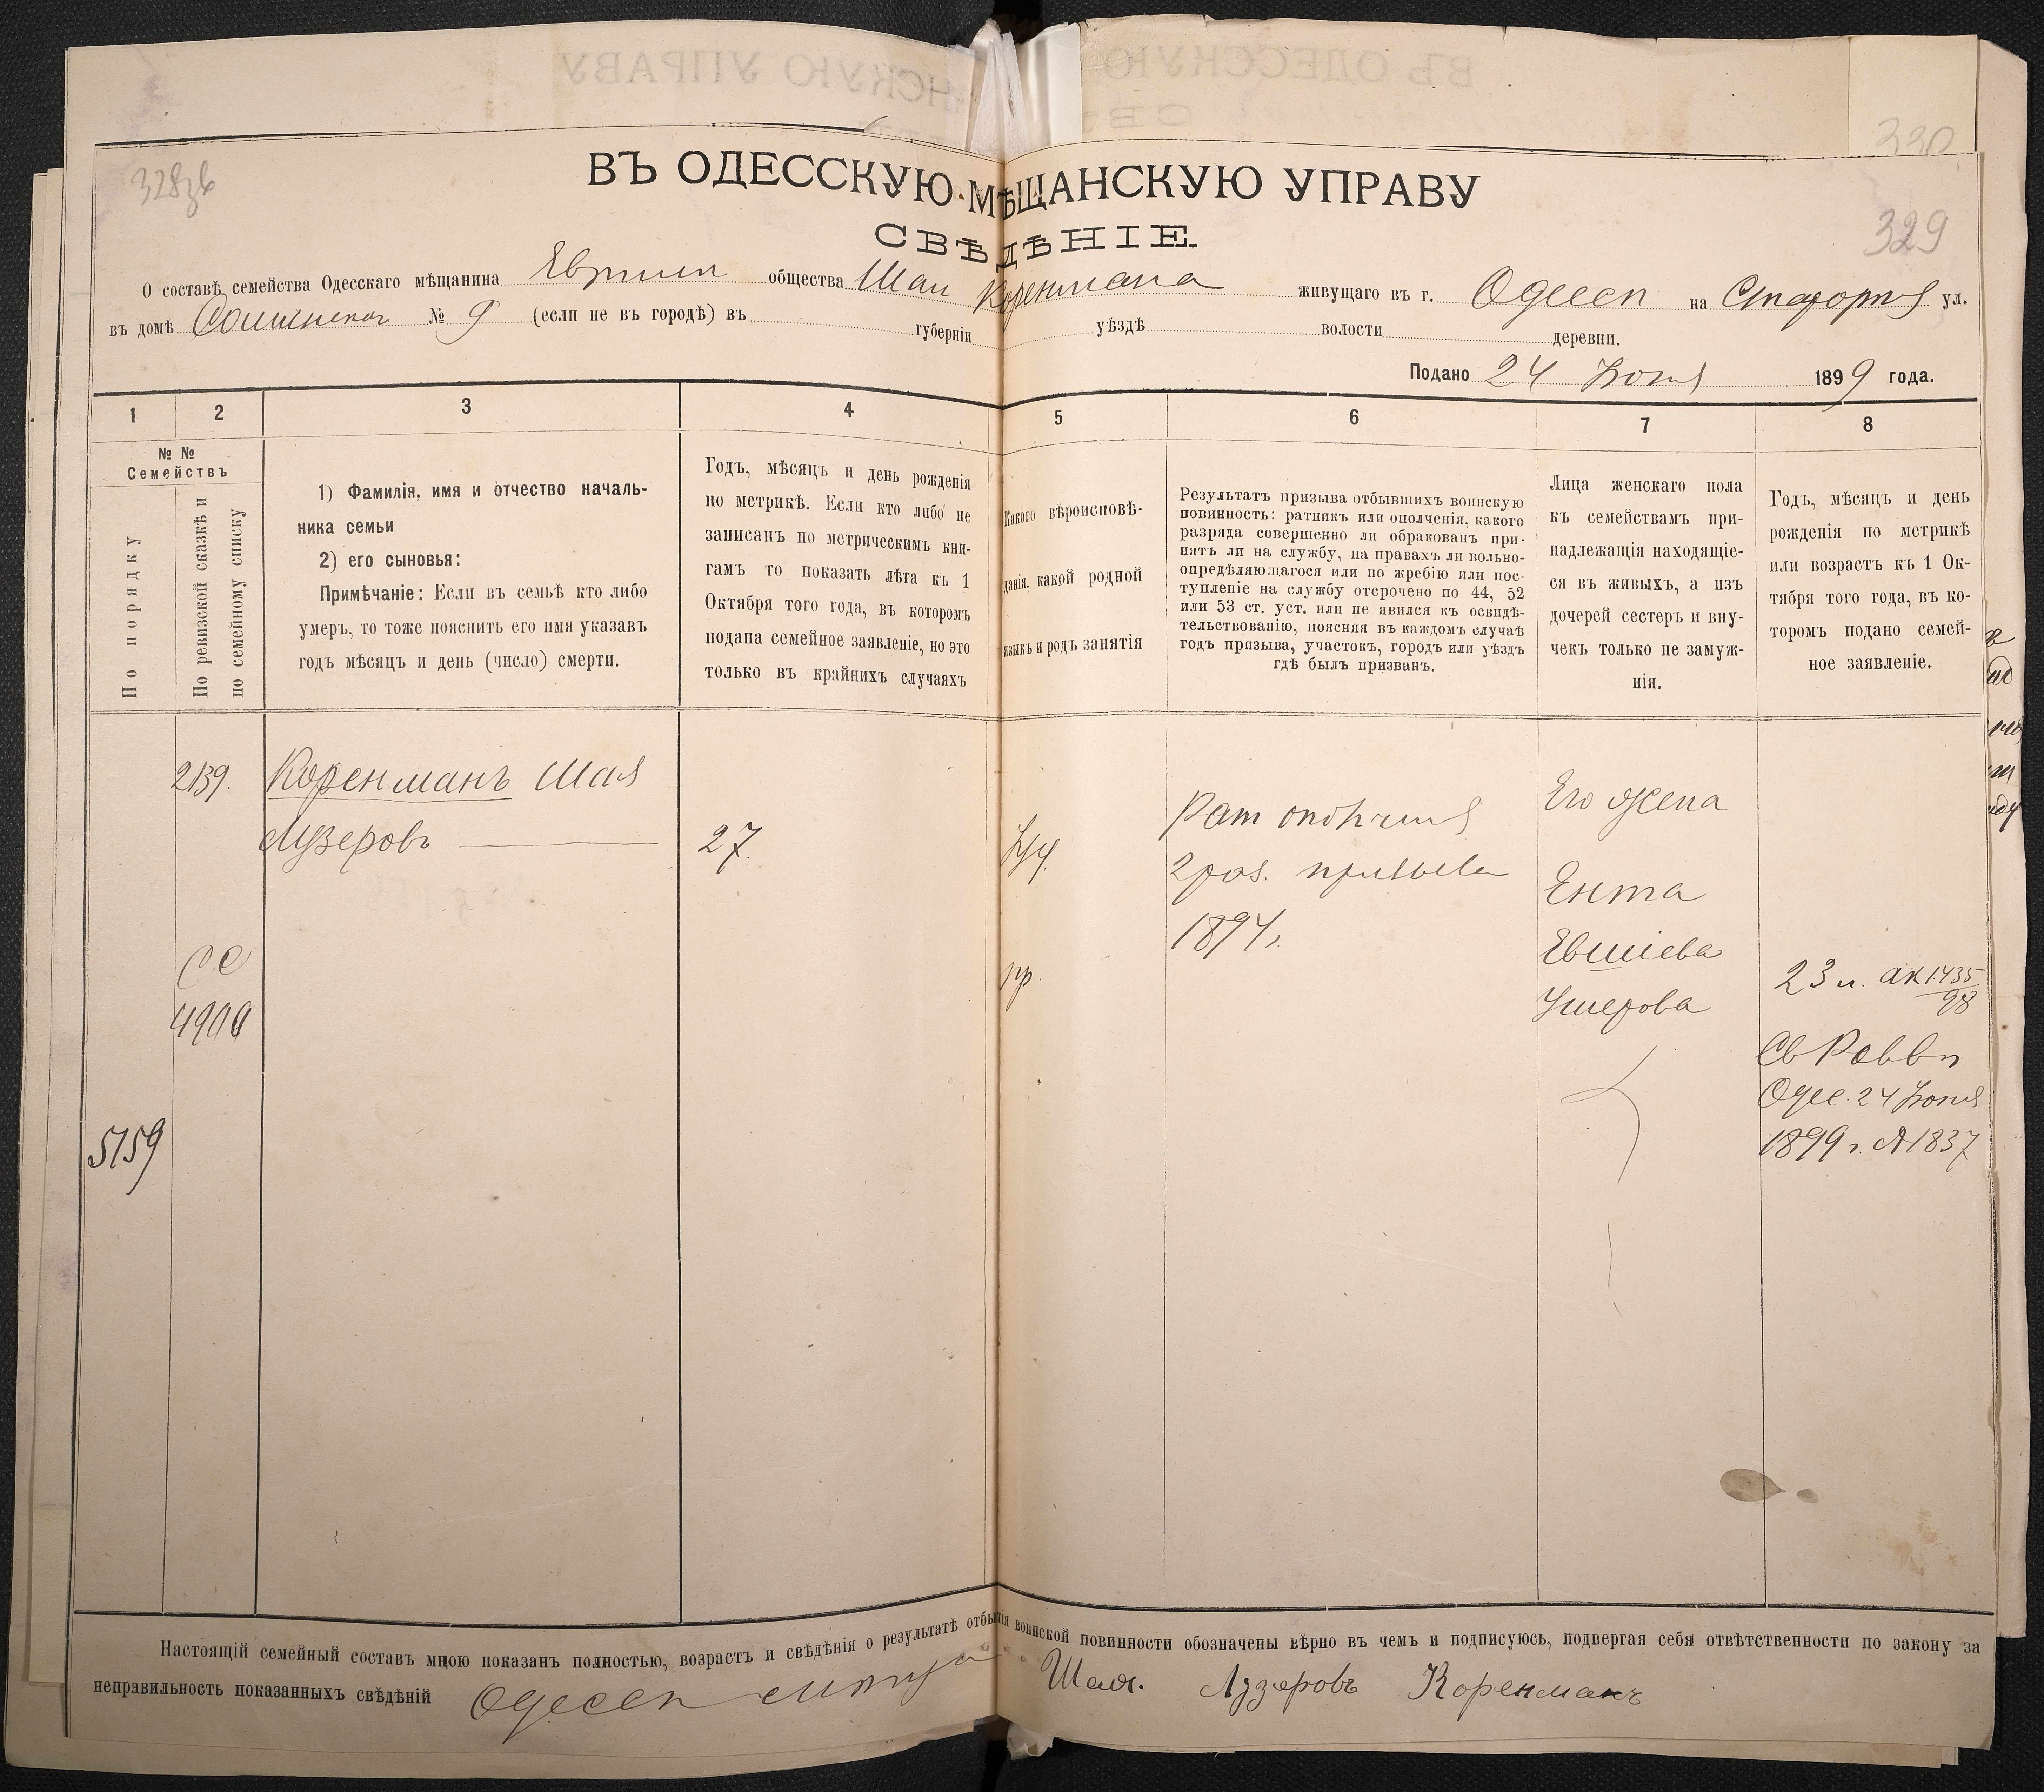 330
328зв
329
ВЪ ОДЕССКУЮ МѢЩАНСКУЮ УПРАВУ
СВѢДѢНІЕ.
О составѣ семейства Одесскаго мѣщанина общества Шаи Коренмана живущаго въ г. Одессѣ на ул.
въ домѣ № 9 (если не въ городѣ) въ губерніи уѣздѣ волости деревни.
Подано 24 Іюня 1899 года.
1 2 3 4 5 6 7 8
№ №
Семействъ
По порядку
По ревизской сказкѣ и
по семейному списку
1) Фамилія, имя и отчество началь-
ника семьи
2) его сыновья:
Примѣчаніе: Если въ семьѣ кто либо
умеръ, то тоже пояснить его имя указавъ
годъ мѣсяцъ и день (число) смерти.
Годъ, мѣсяцъ и день рожденія
по метрикѣ. Если кто либо не
записанъ по метрическимъ кни-
гамъ то показать лѣта къ 1
Октября того года, въ которомъ
подана семейное заявленіе, но это
только въ крайнихъ случаяхъ
Какого вѣроисповѣ-
данія, какой родной
языкъ и родъ занятія
Результатъ призыва отбывшихъ воинскую
повинность: ратникъ или ополченія, какого
разряда совершенно ли обракованъ при-
нятъ ли на службу, на правахъ ли вольно-
опредѣляющагося или по жребію или пос-
тупленіе на службу отсрочено по 44, 52
или 53 ст. уст. или не явился къ освидѣ-
тельствованію, поясняя въ каждомъ случаѣ
годъ призыва, участокъ, городъ или уѣздъ
гдѣ былъ призванъ.
Лица женскаго пола
къ семействамъ при-
надлежащія находящіе-
ся въ живыхъ, а изъ
дочерей сестеръ и вну-
чекъ только не замуж-
нія.
Годъ, мѣсяцъ и день
рожденія по метрикѣ
или возрастъ къ 1 Ок-
тября того года, въ ко-
торомъ подано семей-
ное заявленіе.
2139.
Коренманъ Шая
Лузеровъ
27.
Іуд.
пр.
Рат ополченія
2 раз. призыва
1894г.
Его жена
Ента
Евшіева
Ушерова
23 л. ак 1435
98
Св Равви
Одес. 24 Іюня
1899 г. № 1837
5159
Настоящій семейный составъ мною показанъ полностью, возрастъ и свѣдѣнія о результатѣ отбытія воинской повинности обозначены вѣрно въ чемъ и подписуюсь, подвергая себя отвѣтственности по закону за
неправильность показанныхъ свѣдѣній Шая Лузеровъ Коренманъ